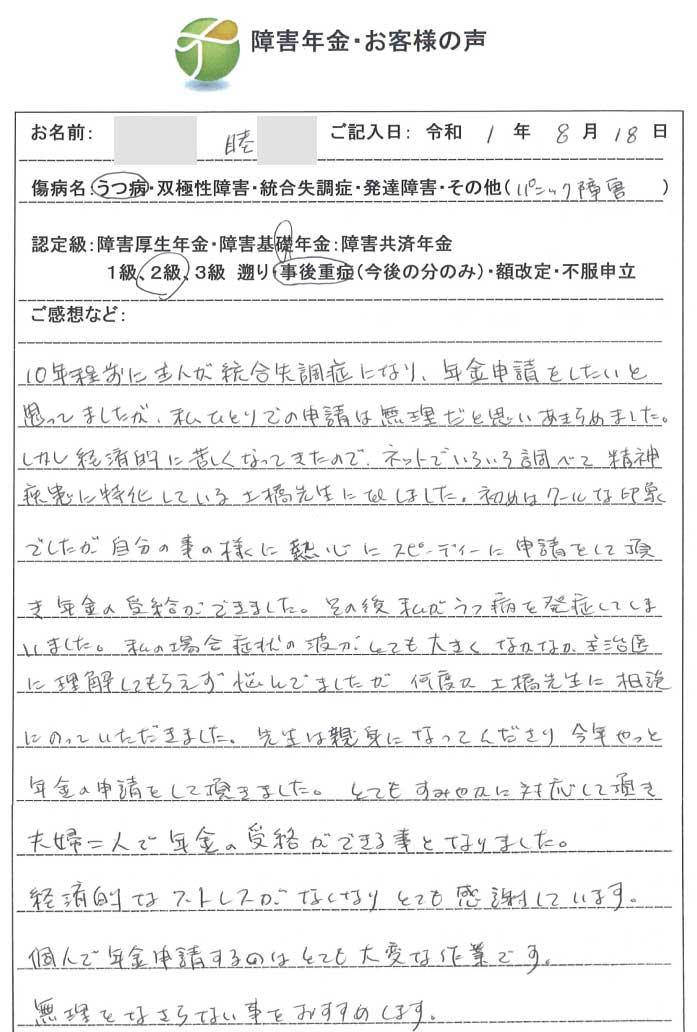 障害年金・お客様の声
お名前： 睦 ご記入日： 令和 1 年 8 月 18 日
傷病名：うつ病・双極性障害・統合失調症・発達障害・その他（パニック障害 ）
認定級：障害厚生年金・障害基礎年金：障害共済年金
1級、2級、3級 遡り・事後重症（今後の分のみ）・額改定・不服申立
ご感想など：
10年程前に主人が統合失調症になり、年金申請をしたいと
思ってましたが、私ひとりでの申請は無理だと思いあきらめました。
しかし経済的に苦しくなってきたので、ネットでいろいろ調べて精神
疾患に特化している土橋先生にtelしました。初めはクールな印象
でしたが自分の事の様に熱心にスピーディーに申請をして頂
き年金の受給ができました。その後私がうつ病を発症してしま
いました。私の場合症状の波がとても大きくなかなか主治医
に理解してもらえず悩んでましたが何度か土橋先生に相談
にのっていただきました。先生は親身になってくださり今年やっと
年金の申請をして頂きました。とてもすみやかに対応して頂き
夫婦二人で年金の受給ができる事となりました。
経済的なストレスがなくなりとても感謝しています。
個人で年金申請するのはとても大変な作業です。
無理をなさらない事をおすすめします。